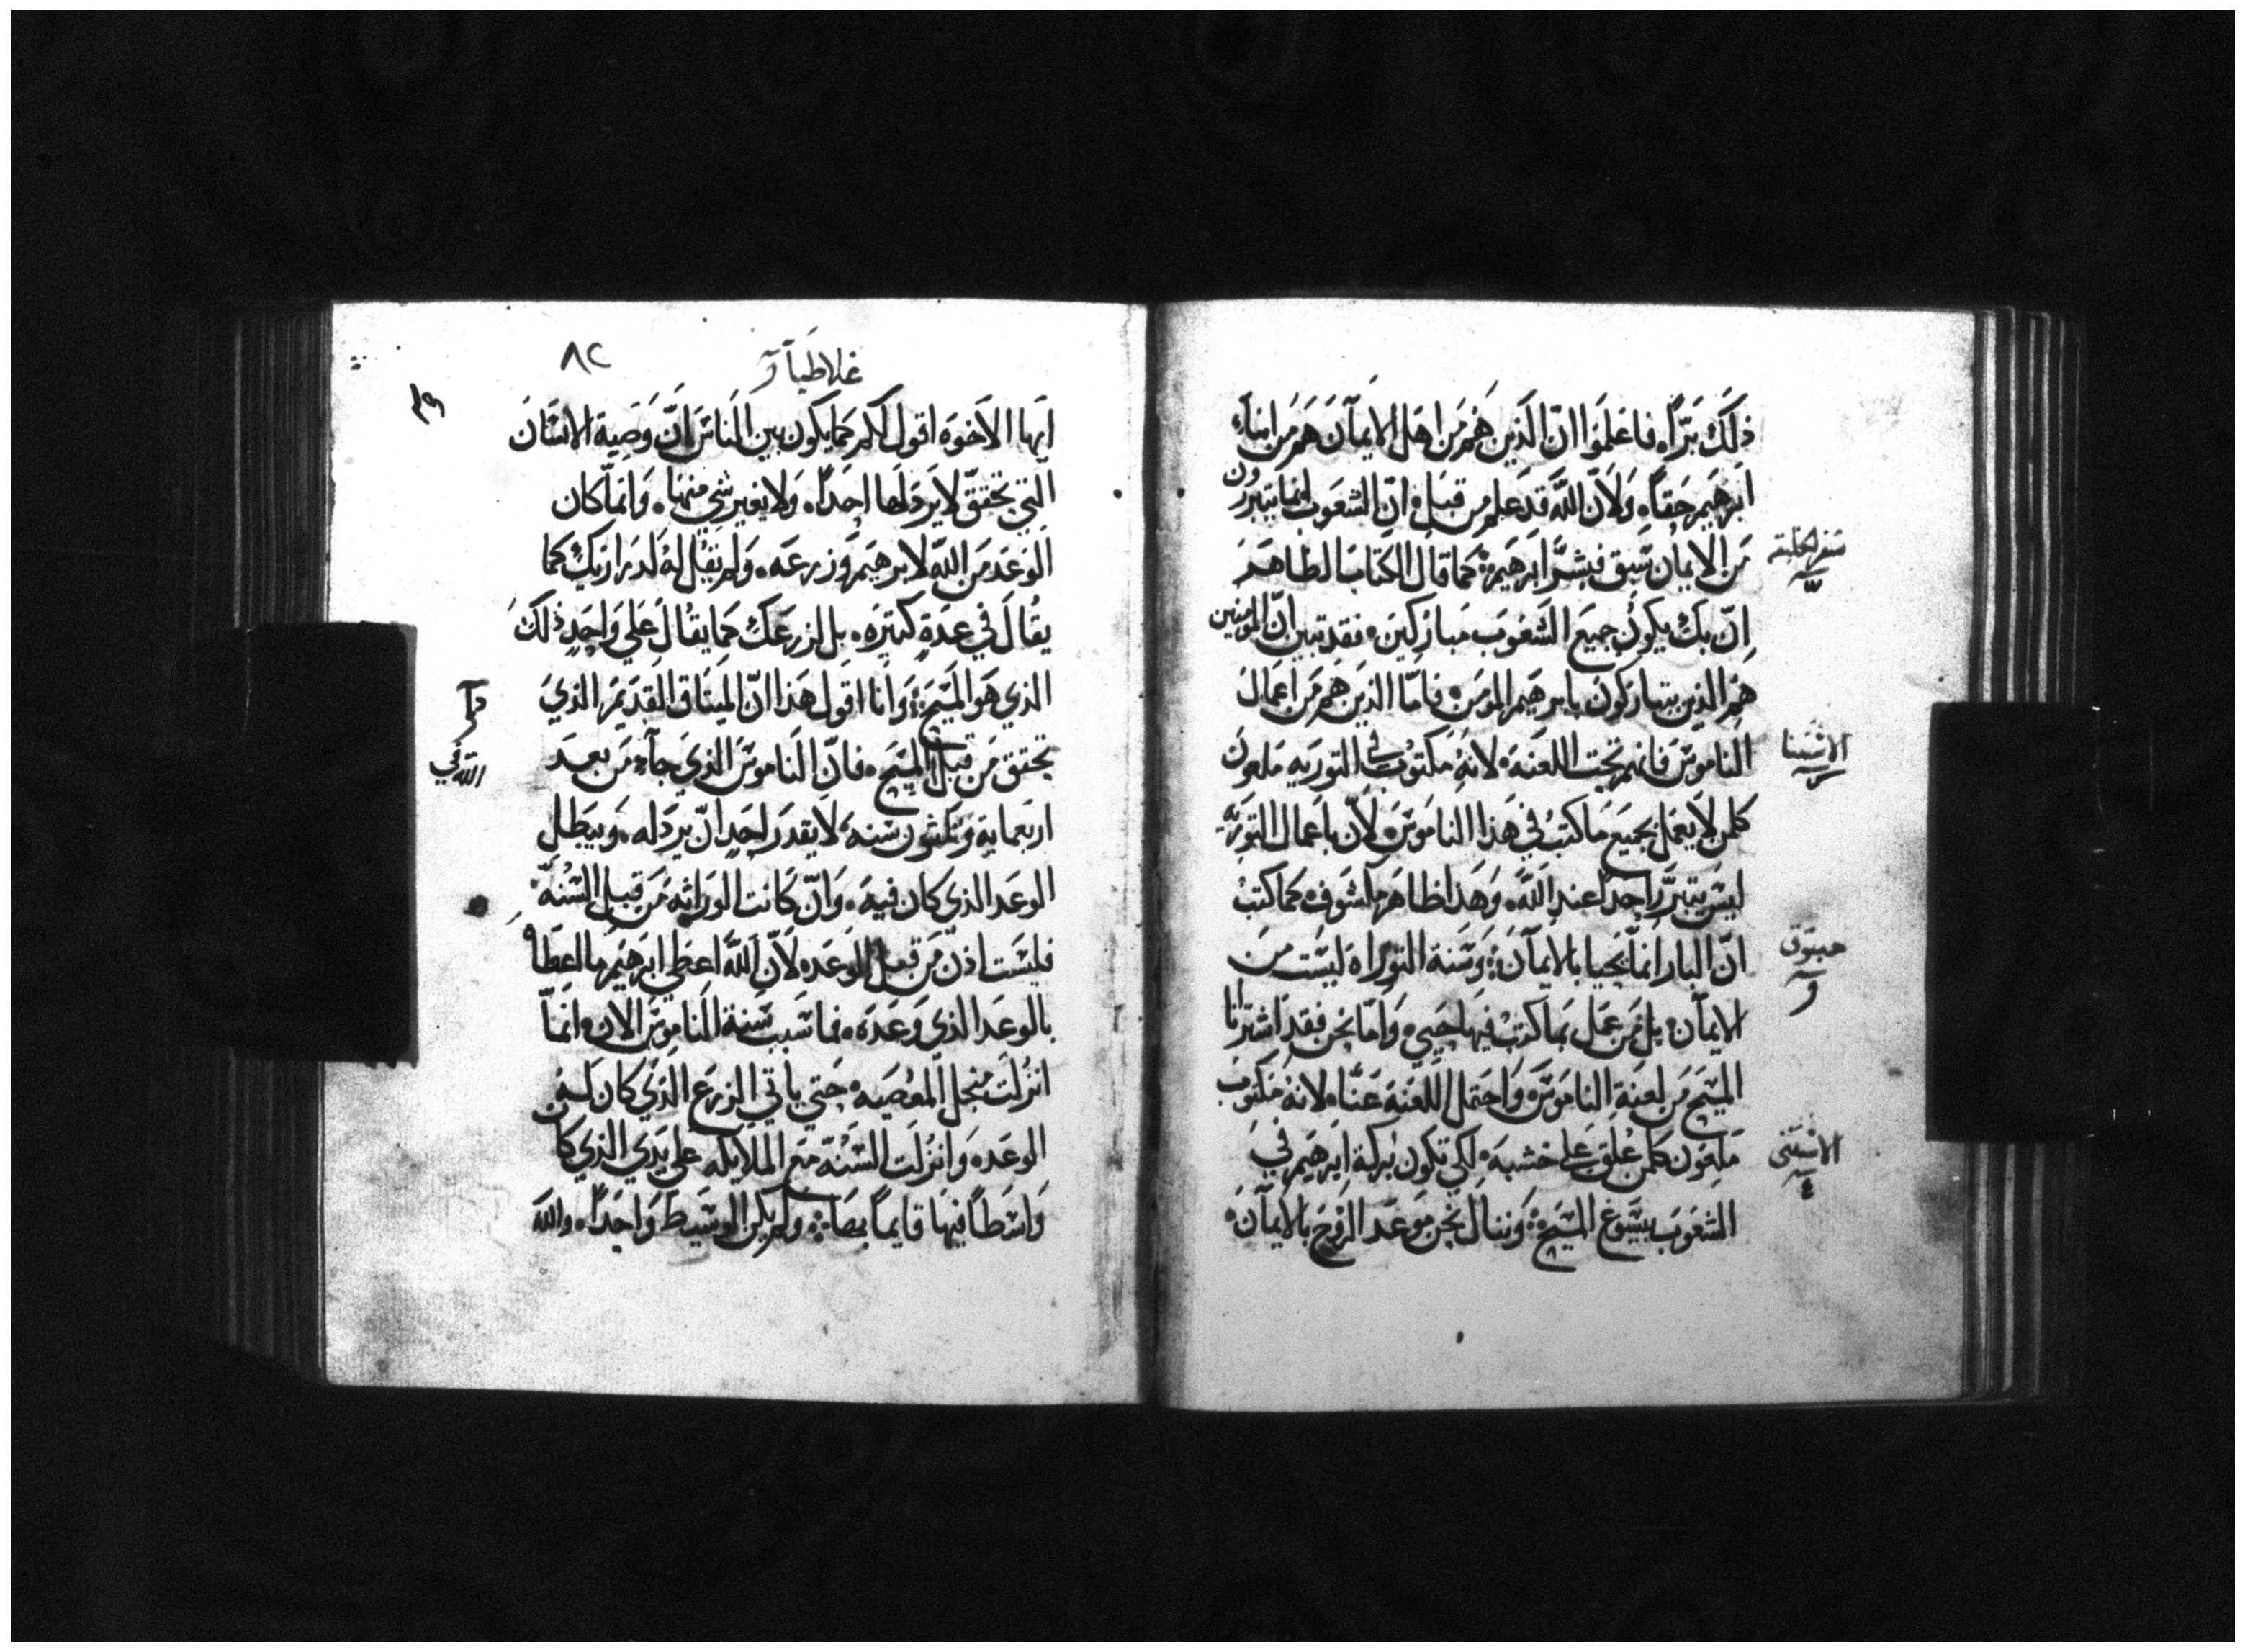 ذلك برًا فاعلموا ان الذين هم من اهل الايمان هم من ابناء
ابرهيم حقًا ولان الله قد علم من قبل ان الشعوب انما يتبررون
من الايمان سبق فبشر ابرهيم كما قال الكتاب الطاهر
ان بك يكون جميع الشعوب مباركين فقد تبين ان المومنين
هم الذين يتباركون بابرهيم المومن فاما الذين هم من اعمال
الناموس فانهم تحت اللعنة لانه مكتوب في التوريه ملعون
كلمن لا يعمل بجميع ما كتب في هذا الناموس لان باعمال التوريه
ليس يتبرر احدًا عند الله وهذا ظاهر مكشوف كما كتب
ان البار انما يحيا بالايمان وسنة التوراه ليست من
الايمان بل من عمل بما كتب فيها حيي واما نحن فقد اشترانا
المسيح من لعنة الناموس واحتمل اللعنة عنا لانه مكتوب
ملعون كلمن علق على خشبه لكي تكون بركة ابرهيم في
الشعوب بيسوع المسيح وننال نحن موعد الروح بالايمان
سفر الخليقة
الاستثنا
حبقوق
الاستثنى
٤
غلاطيا
٨٢
ايها الاخوة اقول لكم كما يكون بين الناس ان وصية الانسان
التي تحقق لا يردلها احدًا ولا يغير شي منها وانما كان
الوعد من الله لابرهيم وزرعه ولم يقل له لذراريك كما
يقال في عدة كثيره بل لزرعك كما يقال على واحد ذلك
الذي هو المسيح وانا اقول هذا ان الميثاق القديم الذي
تحقق من قبل المسيح فان الناموس الذي جاء من بعد
اربعماية وثلثون سنه لا يقدر احد ان يردله ويبطل
الوعد الذي كان فيه وان كانت الوراثه من قبل السنة
فليست اذن من قبل الوعد لان الله اعطى ابرهيم ما اعطاه
بالوعد الذي وعده فما سبب سنة الناموس الان انما
انزلت منجل المعصيه حتى ياتي الزرع الذي كان له
الوعد وانزلت السنة مع الملايكه على يدي الذي كان
واسطًا فيها قايمًا بمصاء ولم يكن الوسيط واحدًا والله